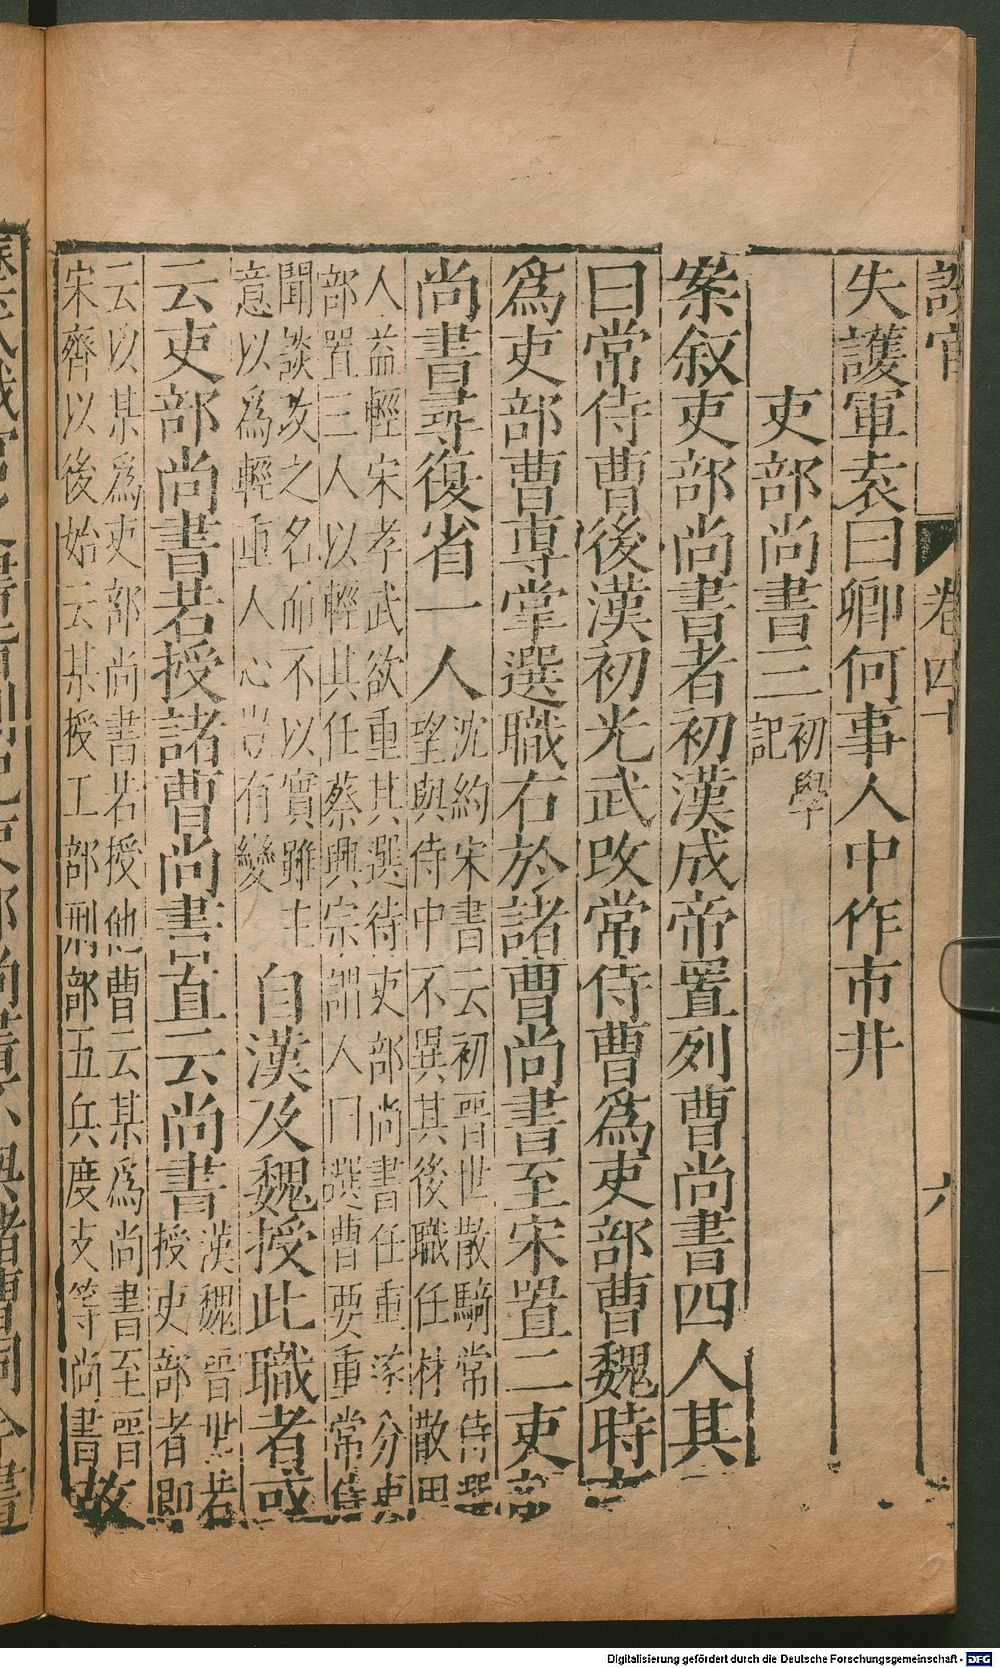 設官
卷四十
六
失護軍袁曰卿何事人中作市井
吏部尚書三初學
記
案叙吏部尚書者初漢成帝置列曹尚書四人其
曰常侍曹後漢初光武改常侍曹爲吏部曹魏時
爲吏部曹專掌選職右於諸曹尚書至宋置二吏部
尚書尋復省一人沈約宋書云初晉世散騎常侍選
望與侍中不異其後職任材散用
人益輕宋孝武欲重其選待吏部尚書任重遂分吏
部置三人以輕其任蔡興宗謂人曰選曹要重常侍
聞談改之名而不以實雖主
意以爲輕重人心豈有變
自漢及魏授此職者或
云吏部尚書若授諸曹尚書直云尚書漢魏晉世若
授吏部者即
云以某爲吏部尚書若授他曹云某爲尚書至晉
宋齊以後始云某授工部刑部五兵度支等尚書故
諸曹同今書
Digitalisierung gefördert durch die Deutsche Forschungsgemeinschaft - DFG